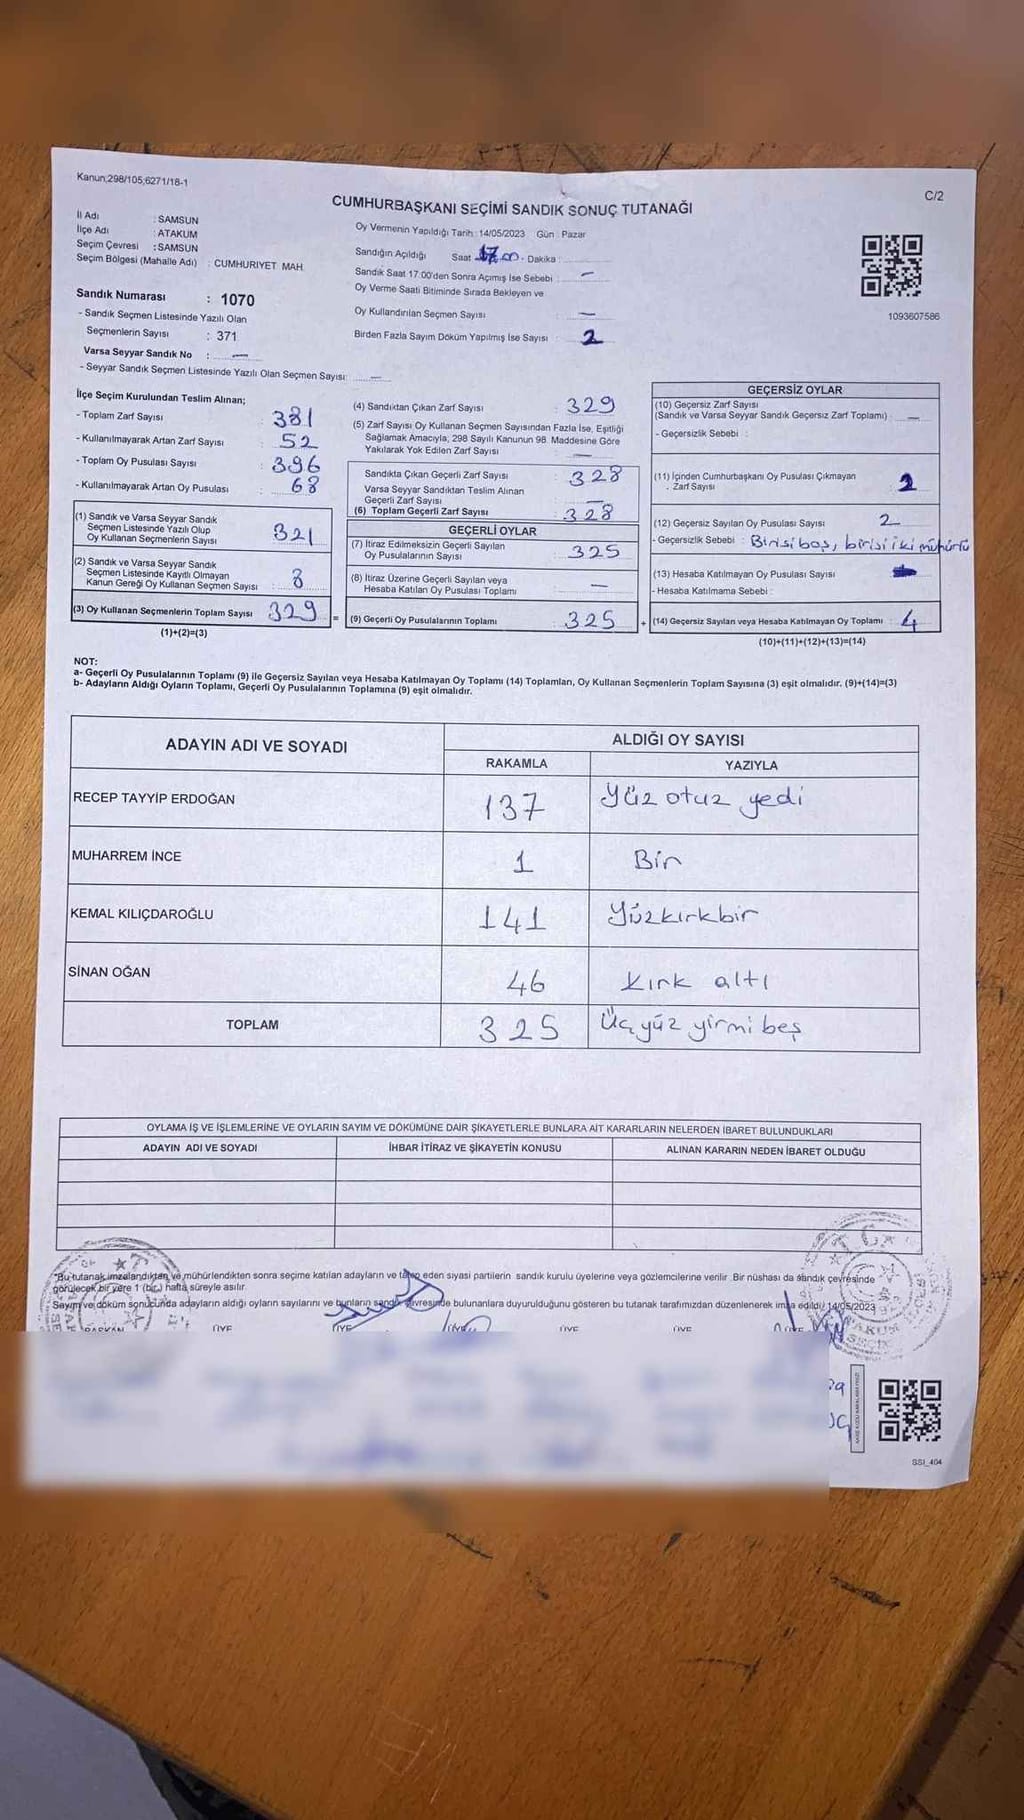 Kanun:298/105,6271/18-1
C/2
CUMHURBAŞKANI SEÇİMİ SANDIK SONUÇ TUTANAĞI
İl Adı : SAMSUN
İlçe Adı : ATAKUM
Seçim Çevresi : SAMSUN
Seçim Bölgesi (Mahalle Adı) : CUMHURİYET MAH.
Sandık Numarası : 1070
- Sandık Seçmen Listesinde Yazılı Olan
Seçmenlerin Sayısı : 371
Varsa Seyyar Sandık No : —
- Seyyar Sandık Seçmen Listesinde Yazılı Olan Seçmen Sayısı: —
Oy Vermenin Yapıldığı Tarih : 14/05/2023 Gün : Pazar
Sandığın Açıldığı Saat 17.00 - Dakika :
Sandık Saat 17:00'den Sonra Açımış İse Sebebi : —
Oy Verme Saati Bitiminde Sırada Bekleyen ve
Oy Kullandırılan Seçmen Sayısı : —
Birden Fazla Sayım Döküm Yapılmış İse Sayısı : 2
1093607586
İlçe Seçim Kurulundan Teslim Alınan;
- Toplam Zarf Sayısı : 381
- Kullanılmayarak Artan Zarf Sayısı : 52
- Toplam Oy Pusulası Sayısı : 396
- Kullanılmayarak Artan Oy Pusulası : 68
(1) Sandık ve Varsa Seyyar Sandık
Seçmen Listesinde Yazılı Olup
Oy Kullanan Seçmenlerin Sayısı : 321
(2) Sandık ve Varsa Seyyar Sandık
Seçmen Listesinde Kayıtlı Olmayan
Kanun Gereği Oy Kullanan Seçmen Sayısı : 8
(3) Oy Kullanan Seçmenlerin Toplam Sayısı 329
(1)+(2)=(3)
(4) Sandıktan Çıkan Zarf Sayısı : 329
(5) Zarf Sayısı Oy Kullanan Seçmen Sayısından Fazla İse, Eşitliği
Sağlamak Amacıyla, 298 Sayılı Kanunun 98. Maddesine Göre
Yakılarak Yok Edilen Zarf Sayısı : —
Sandıkta Çıkan Geçerli Zarf Sayısı : 328
Varsa Seyyar Sandıktan Teslim Alınan
Geçerli Zarf Sayısı : —
(6) Toplam Geçerli Zarf Sayısı : 328
GEÇERLİ OYLAR
(7) İtiraz Edilmeksizin Geçerli Sayılan
Oy Pusulalarının Sayısı : 325
(8) İtiraz Üzerine Geçerli Sayılan veya
Hesaba Katılan Oy Pusulası Toplamı : —
= (9) Geçerli Oy Pusulalarının Toplamı : 325 +
GEÇERSİZ OYLAR
(10) Geçersiz Zarf Sayısı
(Sandık ve Varsa Seyyar Sandık Geçersiz Zarf Toplamı) : —
- Geçersizlik Sebebi :
(11) İçinden Cumhurbaşkanı Oy Pusulası Çıkmayan
Zarf Sayısı : 2
(12) Geçersiz Sayılan Oy Pusulası Sayısı : 2
- Geçersizlik Sebebi : Birisi boş, birisi iki mühürlü
(13) Hesaba Katılmayan Oy Pusulası Sayısı :
- Hesaba Katılmama Sebebi :
(14) Geçersiz Sayılan veya Hesaba Katılmayan Oy Toplamı : 4
(10)+(11)+(12)+(13)=(14)
NOT:
a- Geçerli Oy Pusulalarının Toplamı (9) ile Geçersiz Sayılan veya Hesaba Katılmayan Oy Toplamı (14) Toplamları, Oy Kullanan Seçmenlerin Toplam Sayısına (3) eşit olmalıdır. (9)+(14)=(3)
b- Adayların Aldığı Oyların Toplamı, Geçerli Oy Pusulalarının Toplamına (9) eşit olmalıdır.
ADAYIN ADI VE SOYADI
ALDIĞI OY SAYISI
RAKAMLA YAZIYLA
RECEP TAYYİP ERDOĞAN 137 Yüz otuz yedi
MUHARREM İNCE 1 Bir
KEMAL KILIÇDAROĞLU 141 Yüzkırkbir
SİNAN OĞAN 46 Kırk altı
TOPLAM 325 Üçyüz yirmi beş
OYLAMA İŞ VE İŞLEMLERİNE VE OYLARIN SAYIM VE DÖKÜMÜNE DAİR ŞİKAYETLERLE BUNLARA AİT KARARLARIN NELERDEN İBARET BULUNDUKLARI
ADAYIN ADI VE SOYADI İHBAR İTİRAZ VE ŞİKAYETİN KONUSU ALINAN KARARIN NEDEN İBARET OLDUĞU
*Bu tutanak imzalandıktan ve mühürlendikten sonra seçime katılan adayların ve talep eden siyasi partilerin sandık kurulu üyelerine veya gözlemcilerine verilir. Bir nüshası da sandık çevresinde
görülecek bir yere 1 (bir) hafta süreyle asılır.
Sayım ve döküm sonucunda adayların aldığı oyların sayılarını ve bunların sandık çevresinde bulunanlara duyurulduğunu gösteren bu tutanak tarafımızdan düzenlenerek imza edildi. 14/05/2023
BAŞKAN ÜYE ÜYE ÜYE ÜYE ÜYE ÜYE
SSI_404